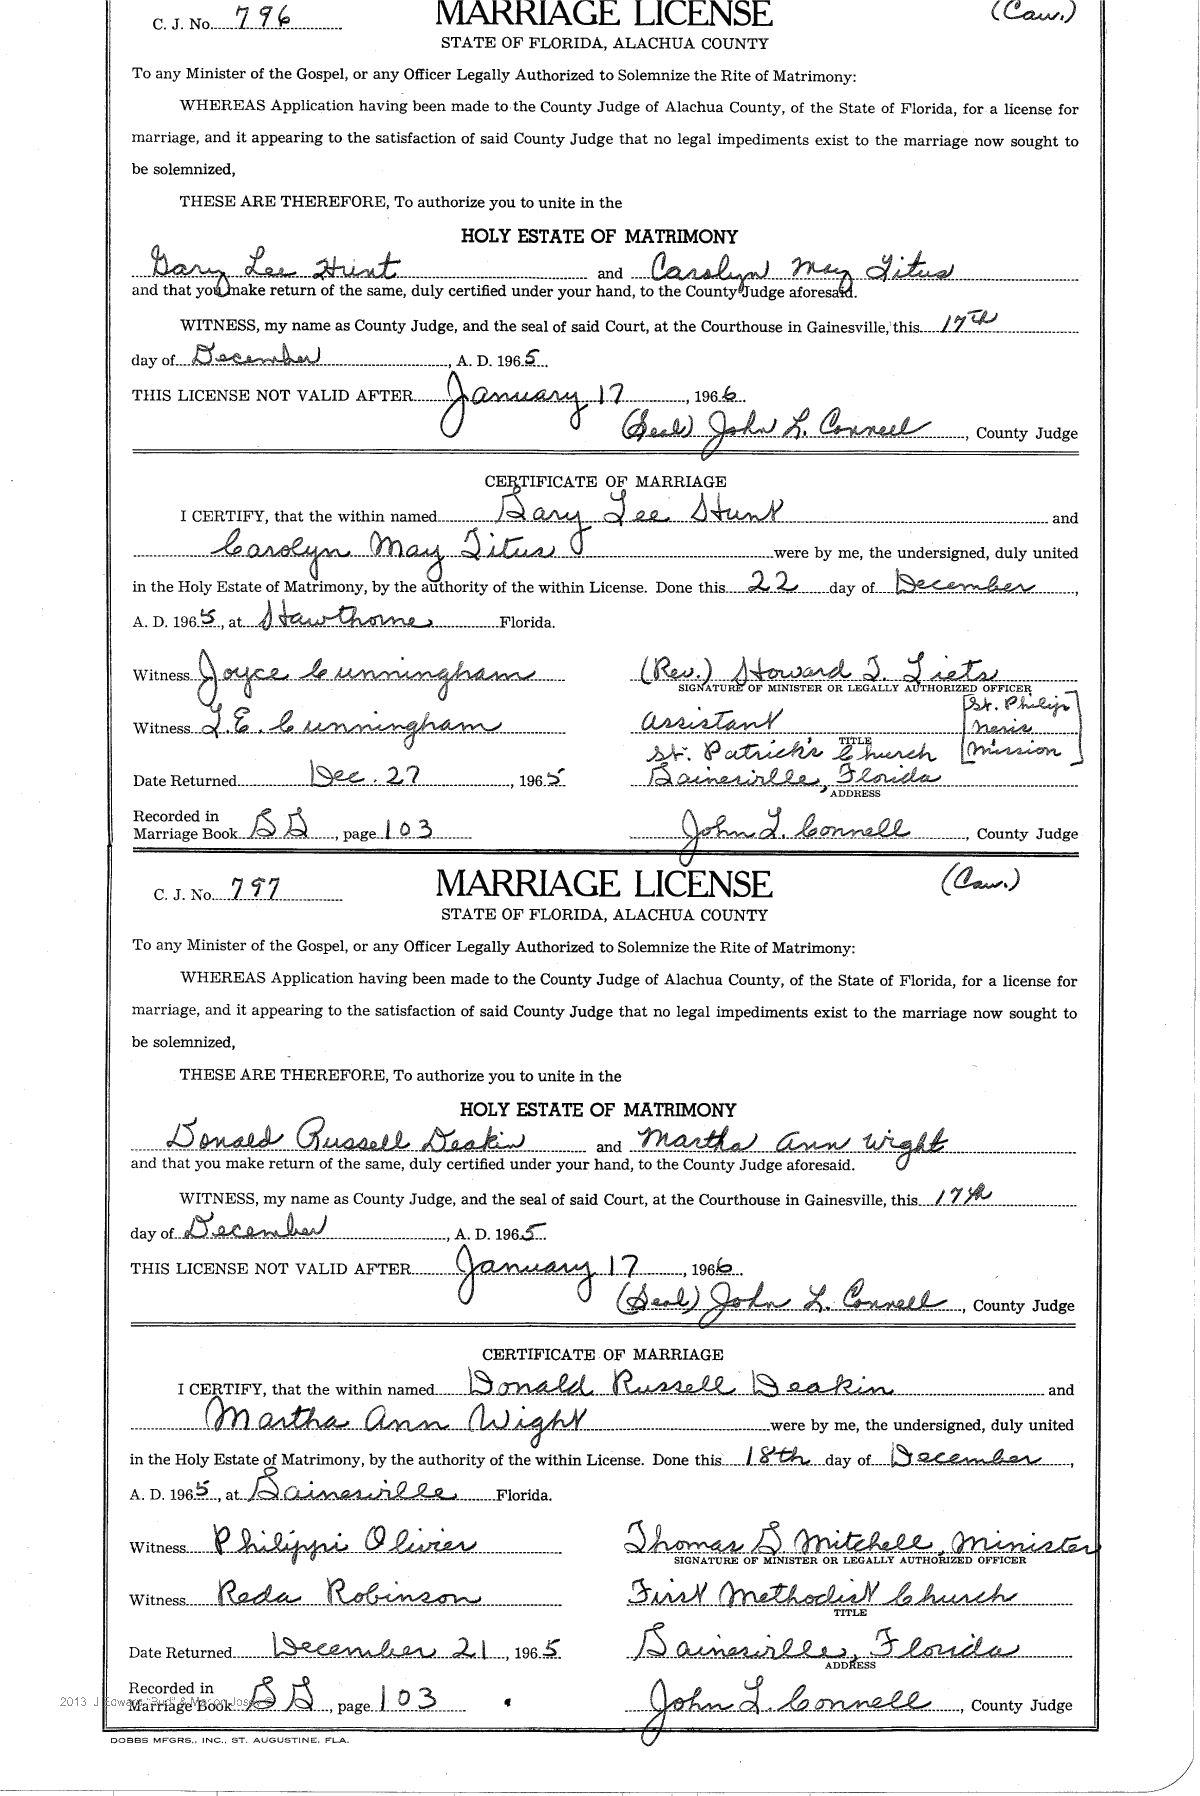 C. J. No. 796 MARRIAGE LICENSE (Cau.)
STATE OF FLORIDA, ALACHUA COUNTY
To any Minister of the Gospel, or any Officer Legally Authorized to Solemnize the Rite of Matrimony:
WHEREAS Application having been made to the County Judge of Alachua County, of the State of Florida, for a license for
marriage, and it appearing to the satisfaction of said County Judge that no legal impediments exist to the marriage now sought to
be solemnized,
THESE ARE THEREFORE, To authorize you to unite in the
HOLY ESTATE OF MATRIMONY
Gary Lee Hunt and Carolyn May Titus
and that you make return of the same, duly certified under your hand, to the County Judge aforesaid.
WITNESS, my name as County Judge, and the seal of said Court, at the Courthouse in Gainesville, this 17th
day of December, A. D. 1965.
THIS LICENSE NOT VALID AFTER January 17, 1966.
(Seal) John L. Connell, County Judge
CERTIFICATE OF MARRIAGE
I CERTIFY, that the within named Gary Lee Hunt and
Carolyn May Titus were by me, the undersigned, duly united
in the Holy Estate of Matrimony, by the authority of the within License. Done this 22 day of December,
A. D. 1965, at Hawthorne Florida.
Witness Joyce Cunningham (Rev.) Howard T. Liets
SIGNATURE OF MINISTER OR LEGALLY AUTHORIZED OFFICER
Witness L.E. Cunningham Assistant [St. Philip Neris Mission]
TITLE
St. Patrick's Church
Date Returned Dec. 27, 1965 Gainesville, Florida
ADDRESS
Recorded in
Marriage Book GG, page 103 John L. Connell, County Judge
C. J. No. 797 MARRIAGE LICENSE (Cau.)
STATE OF FLORIDA, ALACHUA COUNTY
To any Minister of the Gospel, or any Officer Legally Authorized to Solemnize the Rite of Matrimony:
WHEREAS Application having been made to the County Judge of Alachua County, of the State of Florida, for a license for
marriage, and it appearing to the satisfaction of said County Judge that no legal impediments exist to the marriage now sought to
be solemnized,
THESE ARE THEREFORE, To authorize you to unite in the
HOLY ESTATE OF MATRIMONY
Donald Russell Deakin and Martha Ann Wight
and that you make return of the same, duly certified under your hand, to the County Judge aforesaid.
WITNESS, my name as County Judge, and the seal of said Court, at the Courthouse in Gainesville, this 17th
day of December, A. D. 1965.
THIS LICENSE NOT VALID AFTER January 17, 1966.
(Seal) John L. Connell, County Judge
CERTIFICATE OF MARRIAGE
I CERTIFY, that the within named Donald Russell Deakin and
Martha Ann Wight were by me, the undersigned, duly united
in the Holy Estate of Matrimony, by the authority of the within License. Done this 18th day of December,
A. D. 1965, at Gainesville Florida.
Witness Philippi Olivier Thomas G. Mitchell, Minister
SIGNATURE OF MINISTER OR LEGALLY AUTHORIZED OFFICER
Witness Reda Robinson First Methodist Church
TITLE
Date Returned December 21, 1965 Gainesville, Florida
ADDRESS
Recorded in
Marriage Book GG, page 103 John L. Connell, County Judge
2013 J Edward "Bud" &
DOBBS MFGRS., INC., ST. AUGUSTINE, FLA.